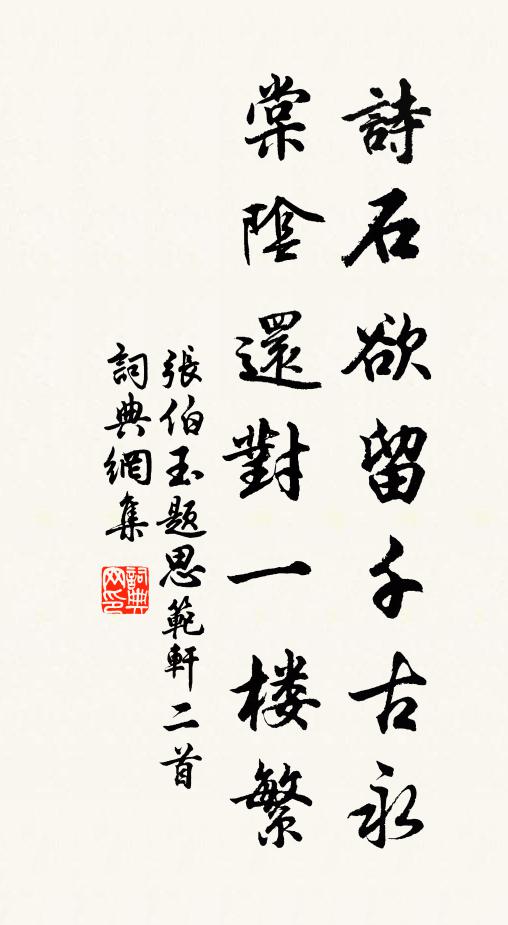 詩石欲留千古永
棠陰還對一楼繁
張伯玉題思範軒二首
詞典網集
詞典網印